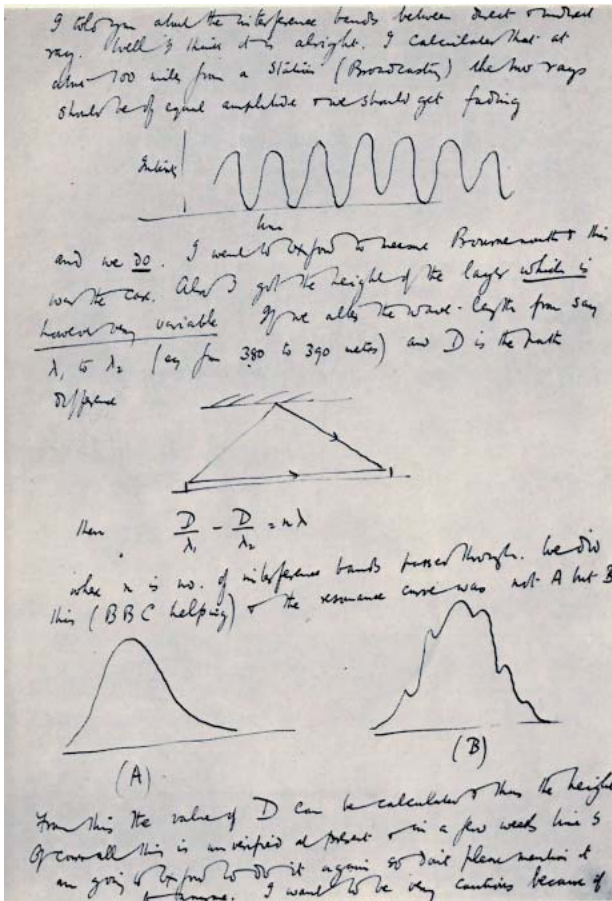 I told you about the interference bands between direct & indirect
ray. Well I think it is alright. I calculated that at
about 100 miles from a Station (Broadcasting) the two rays
should be of equal amplitude & we should get fading
Intensity
time
and we do. I went to Oxford to measure Bournemouth & this
was the case. Also I got the height of the layer which is
however very variable If we alter the wave-length from say
λ₁ to λ₂ (say from 380 to 390 metres) and D is the path
difference
then D/λ₁ - D/λ₂ = n
where n is no. of interference bands passed through. We did
this (BBC helping) & the resonance curve was not A but B
(A)
(B)
From this the value of D can be calculated & thus the height
Of course all this is unverified at present & in a few weeks time I
am going to Oxford to do it again so don't please mention it
I want to be very cautious because if